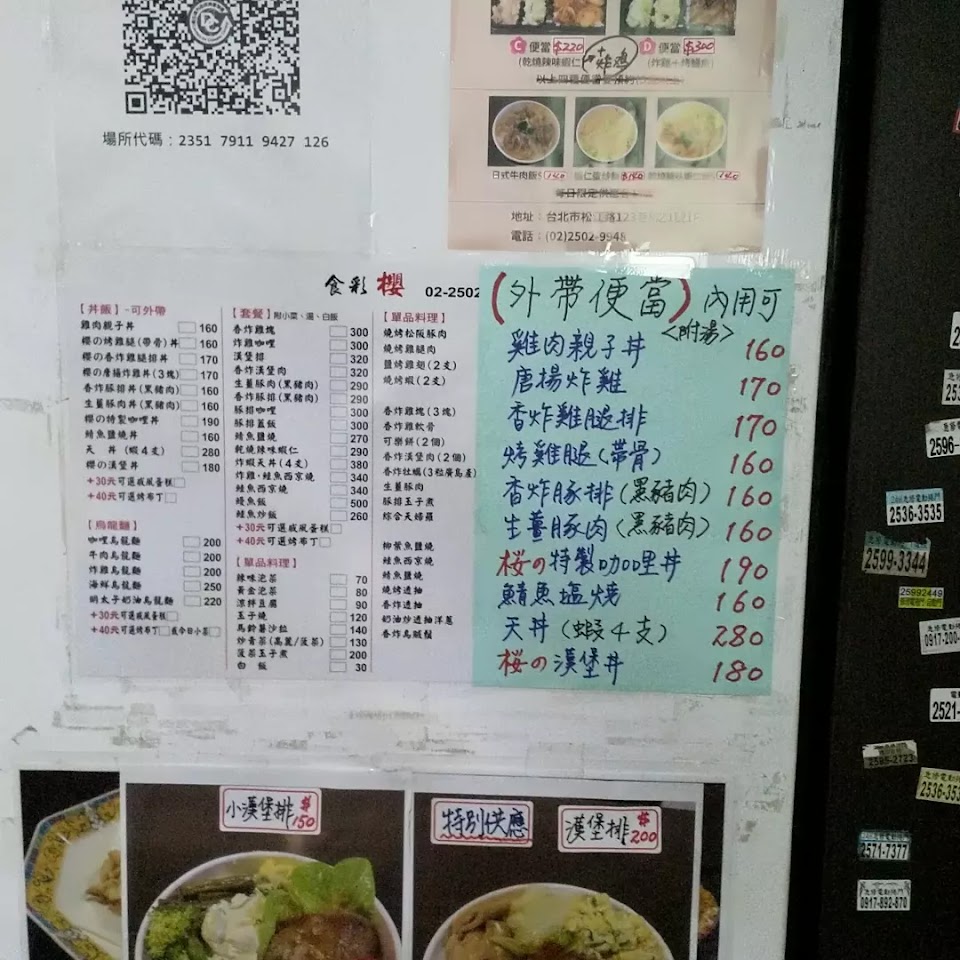 場所代碼：2351 7911 9427 126
C 便當 $220
(乾燒辣味蝦仁)
炸鴉
D 便當 $300
日式牛肉飯
地址：台北市松江路123巷
電話：(02)2502-9948
食彩 櫻 02-2502
【丼飯】-可外帶
雞肉親子丼 160
櫻の烤雞腿(帶骨)丼 160
櫻の香炸雞腿排丼 170
櫻の唐揚炸雞丼(3塊) 170
香炸豚排丼(黑豬肉) 160
生薑豚肉丼(黑豬肉) 160
櫻の特製咖哩丼 190
鯖魚鹽燒丼 160
天 丼 (蝦4支) 280
櫻の漢堡丼 180
+30元可選戚風蛋糕
+40元可選烤布丁
【烏龍麵】
咖哩烏龍麵 200
牛肉烏龍麵 200
炸雞烏龍麵 200
海鮮烏龍麵 250
明太子奶油烏龍麵 220
+30元可選戚風蛋糕
+40元可選烤布丁 或今日小菜
【套餐】附小菜、湯、白飯
香炸雞塊 300
炸雞咖哩 300
漢堡排 320
香炸漢堡肉 320
生薑豚肉(黑豬肉) 290
香炸豚排(黑豬肉) 290
豚排咖哩 300
豚排蓋飯 300
鯖魚鹽燒 270
乾燒辣味蝦仁 290
炸蝦天丼(4支) 380
炸雞·鮭魚西京燒 340
鮭魚西京燒 340
鰻魚飯 500
鮭魚炒飯 260
+30元可選戚風蛋糕
+40元可選烤布丁
【單品料理】
辣味泡菜 70
黃金泡菜 80
涼拌豆腐 90
玉子燒 120
馬鈴薯沙拉 140
炒青菜(高麗/菠菜) 130
菠菜玉子煮 200
白 飯 30
【單品料理】
燒烤松阪豚肉
燒烤雞腿肉
鹽烤雞翅(2支)
燒烤蝦(2支)
香炸雞塊(3塊)
香炸雞軟骨
可樂餅(2個)
香炸漢堡肉(2個)
香炸牡蠣(3粒廣島產)
生薑豚肉
豚排玉子煮
綜合天婦羅
柳葉魚鹽燒
鮭魚西京燒
鯖魚鹽燒
燒烤透抽
香炸透抽
奶油炒透抽洋蔥
香炸烏賊鬚
(外帶便當)內用可
<附湯>
雞肉親子丼 160
唐揚炸雞 170
香炸雞腿排 170
烤雞腿(帶骨) 160
香炸豚排(黑豬肉) 160
生薑豚肉(黑豬肉) 160
桜の特製咖哩丼 190
鯖魚塩燒 160
天丼(蝦4支) 280
桜の漢堡丼 180
小漢堡排 $150
特別供應
漢堡排 $200
2536-3535
2599-3344
25992449
0917-200-
2521-
2585-2723
2536-353
2571-7377
0917-892-870
2596-